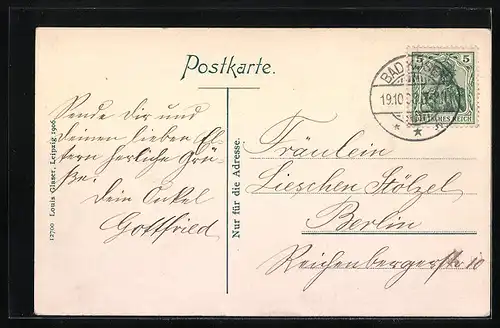 Postkarte.
Sende Dir und
Deinen lieben El-
tern herliche Grü-
ße.
Dein Onkel
Gottfried
12700 Louis Glaser, Leipzig 1906.
Nur für die Adresse.
5 5
DEUTSCHES REICH
BAD
19.10
Fräulein
Lieschen Stölzel
Berlin
Reichenbergerstr 10